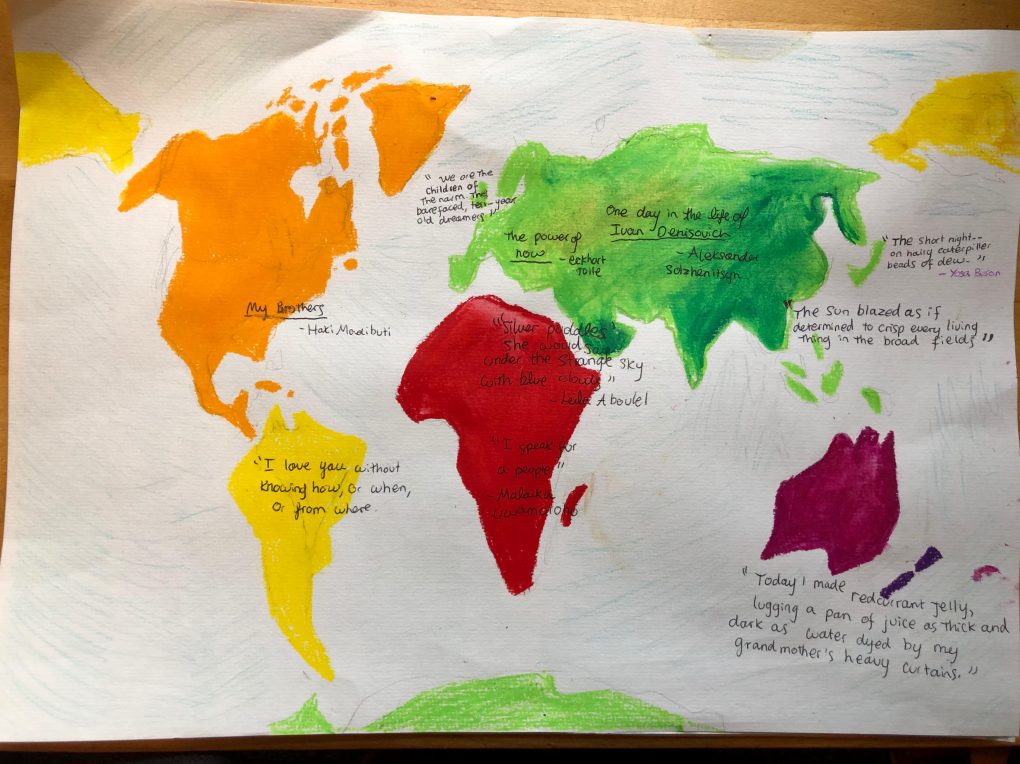 "We are the
children of
the narm. The
barefaced, ten-year
old dreamers"
One day in the life of
Ivan Denisovich
- Aleksander
Solzhenitsyn
The power of
now - eckhart
Tolle
"The short night--
on hairy caterpiller
beads of dew."
- Yosa Buson
My Brothers
- Haki Madibuti
"The sun blazed as if
determined to crisp every living
thing in the broad fields"
"Silver puddles"
she would say
under the strange sky
with blue clouds"
- Leila Aboulel
"I love you without
knowing how, or when,
or from where.
"I speak for
a people"
- Malaika
Uwamahoro
"Today I made redcurrant jelly,
lugging a pan of juice as thick and
dark as water dyed by my
grandmother's heavy curtains."